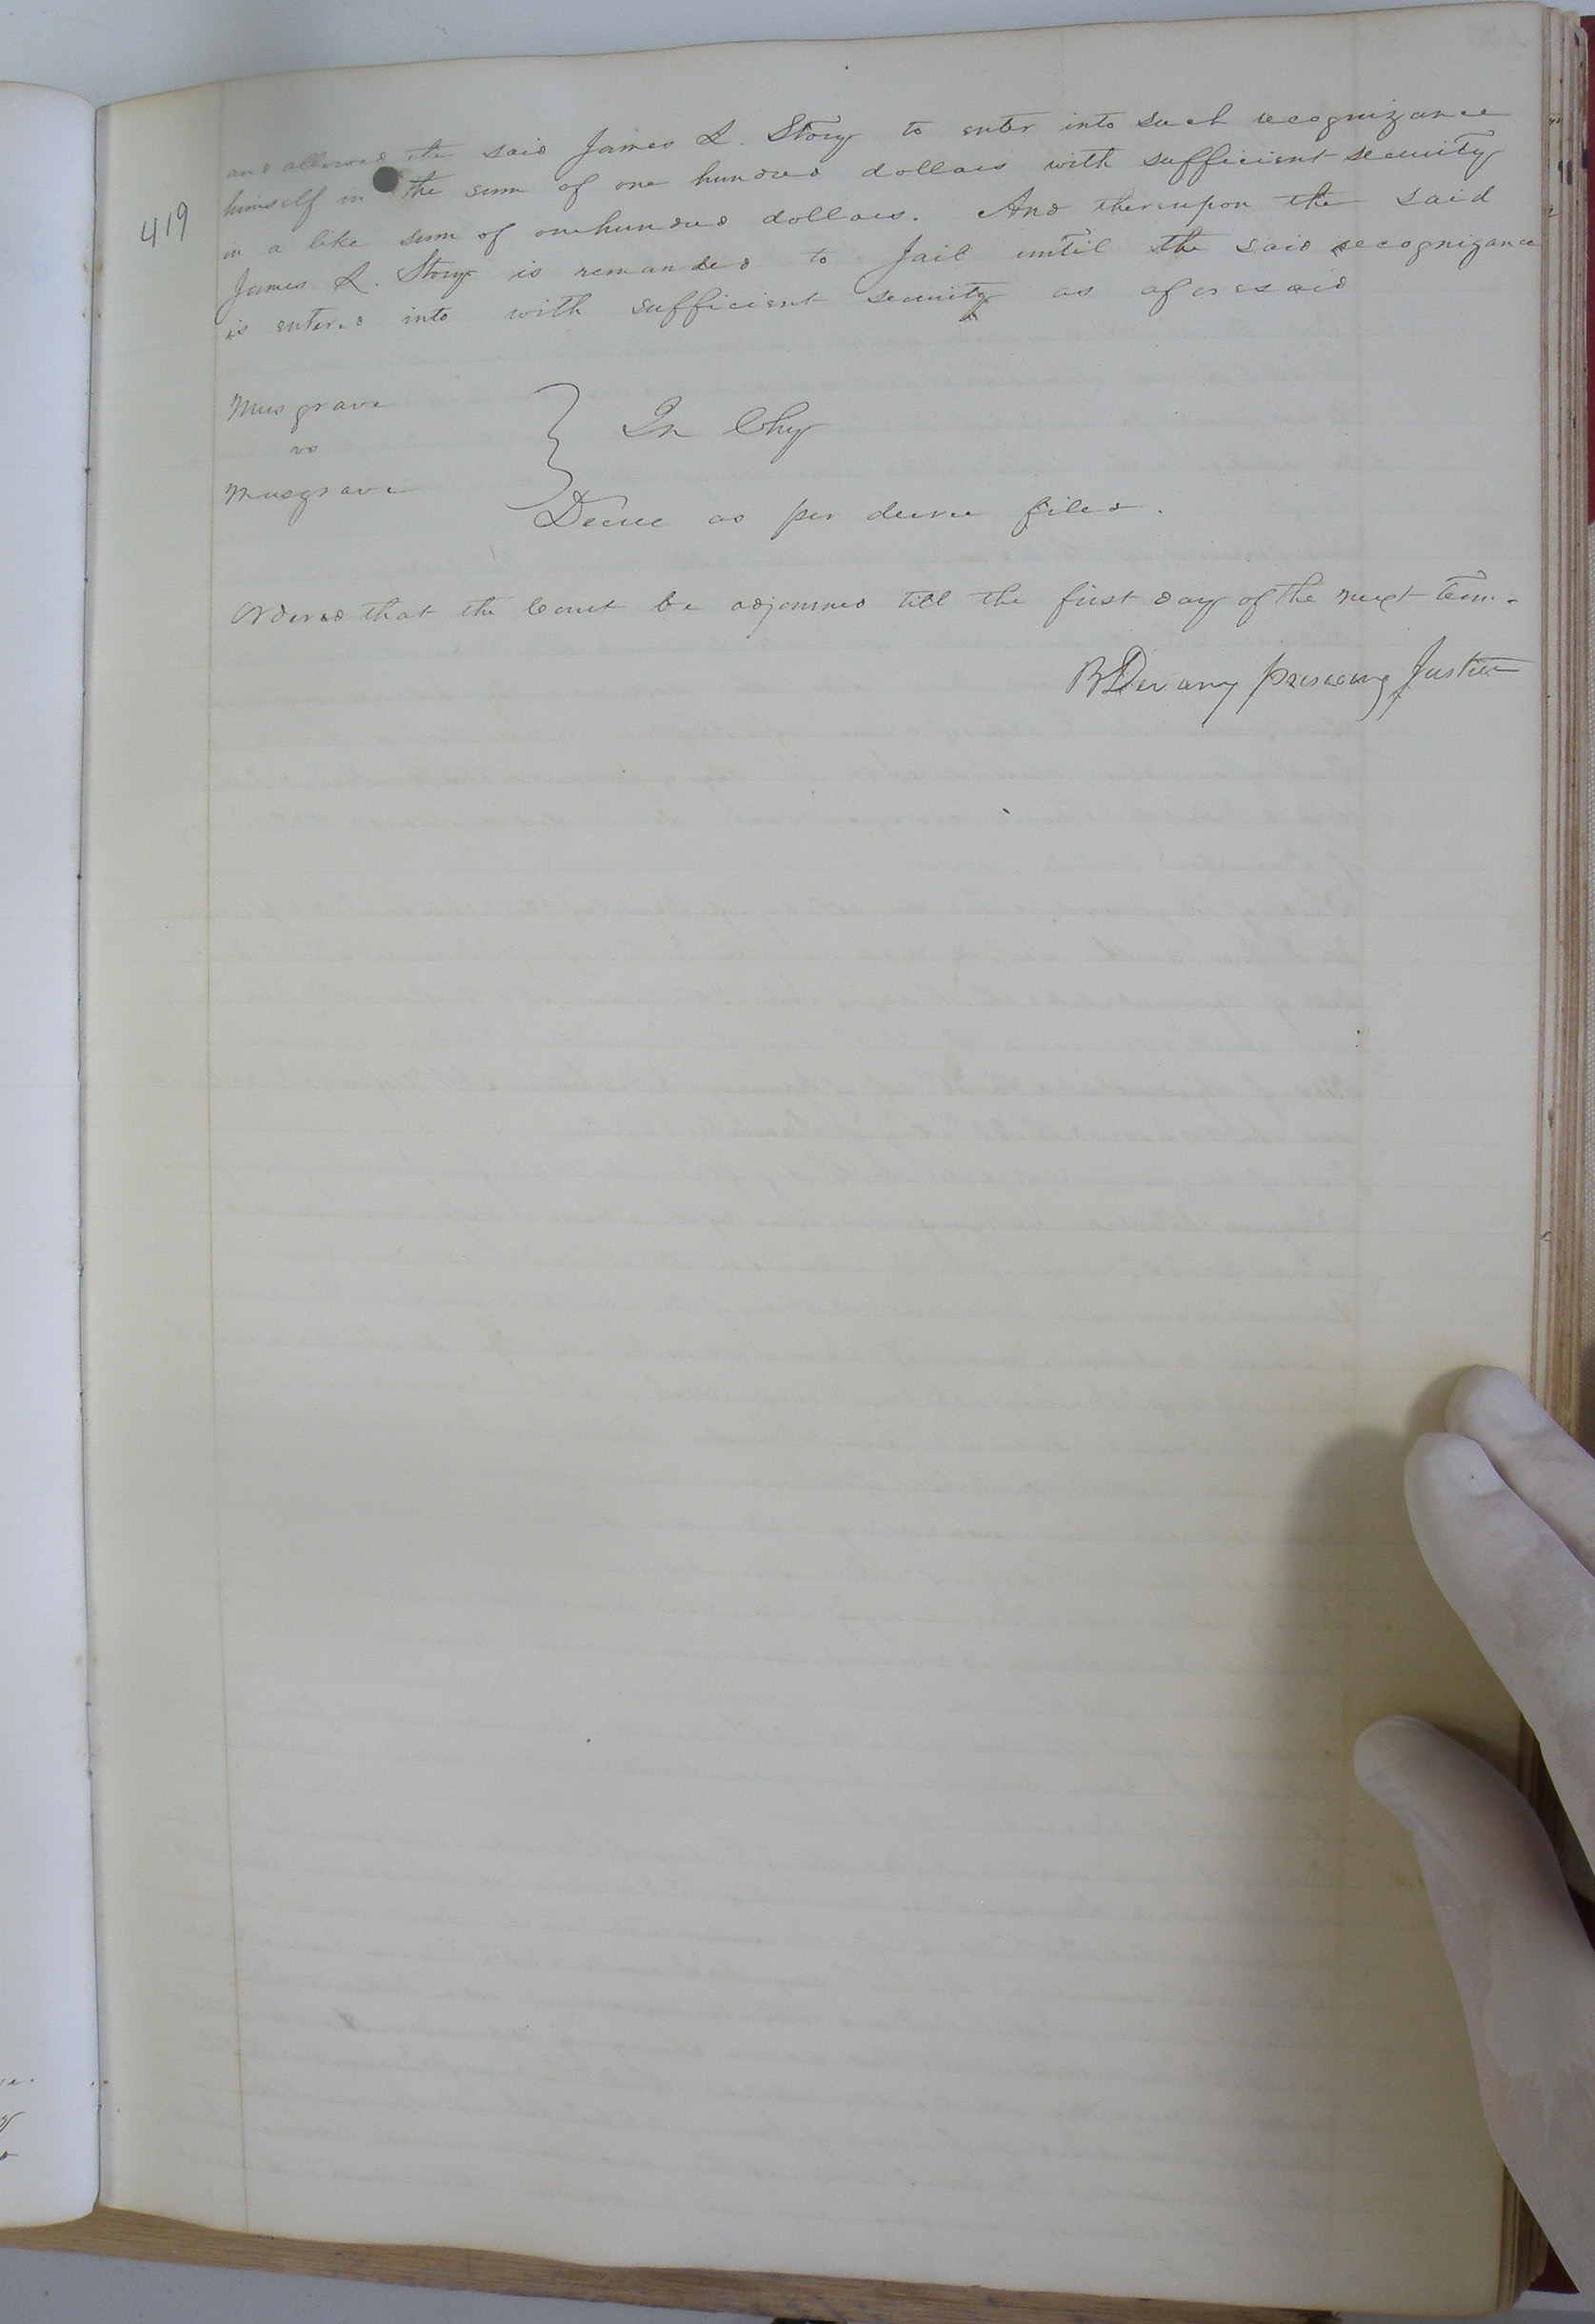 419
and allowed the said James L. Story to enter into such recognizance
himself in the sum of one hundred dollars with sufficient security
in a like sum of one hundred dollars. And thereupon the said
James L. Story is remanded to Jail until the said recognizance
is entered into with sufficient security as aforesaid
Musgrave
vs
Musgrave
In Chy
Decree as per decree filed.
Ordered that the Court be adjourned till the first day of the next Term.
B Devany presiding Justice